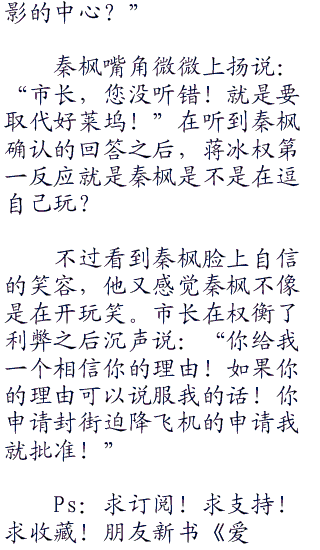 影的中心？”
秦枫嘴角微微上扬说：
“市长，您没听错！就是要
取代好莱坞！”在听到秦枫
确认的回答之后，蒋冰权第
一反应就是秦枫是不是在逗
自己玩？
不过看到秦枫脸上自信
的笑容，他又感觉秦枫不像
是在开玩笑。市长在权衡了
利弊之后沉声说：“你给我
一个相信你的理由！如果你
的理由可以说服我的话！你
申请封街迫降飞机的申请我
就批准！”
Ps：求订阅！求支持！
求收藏！朋友新书《爱